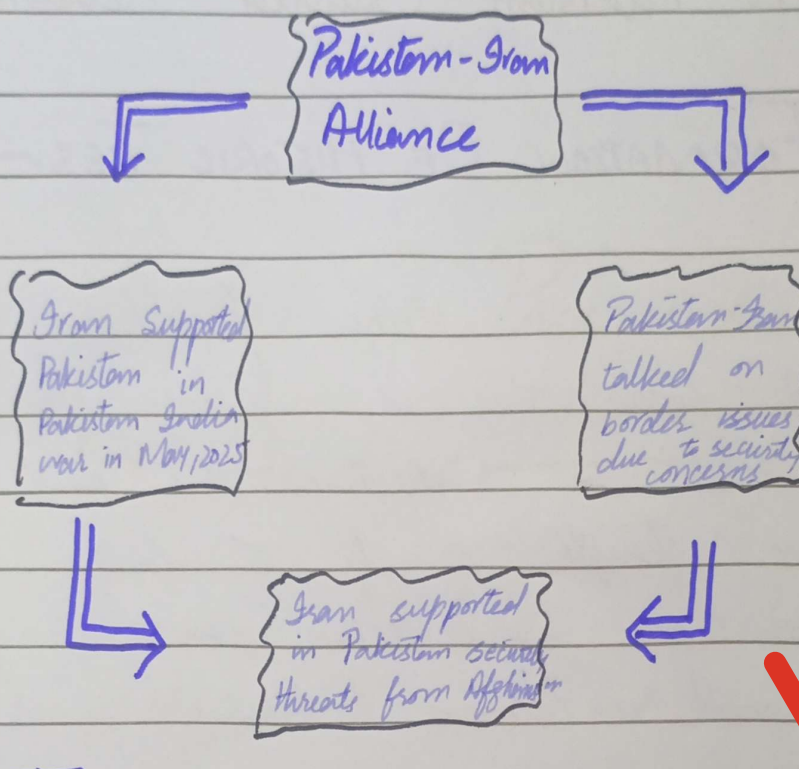 Pakistan-Iran
Alliance
Iran Supported
Pakistan in
Pakistan India
war in May, 2025
Pakistan-Iran
talked on
border issues
due to security
concerns
Iran supported
in Pakistan security
threats from Afghanistan